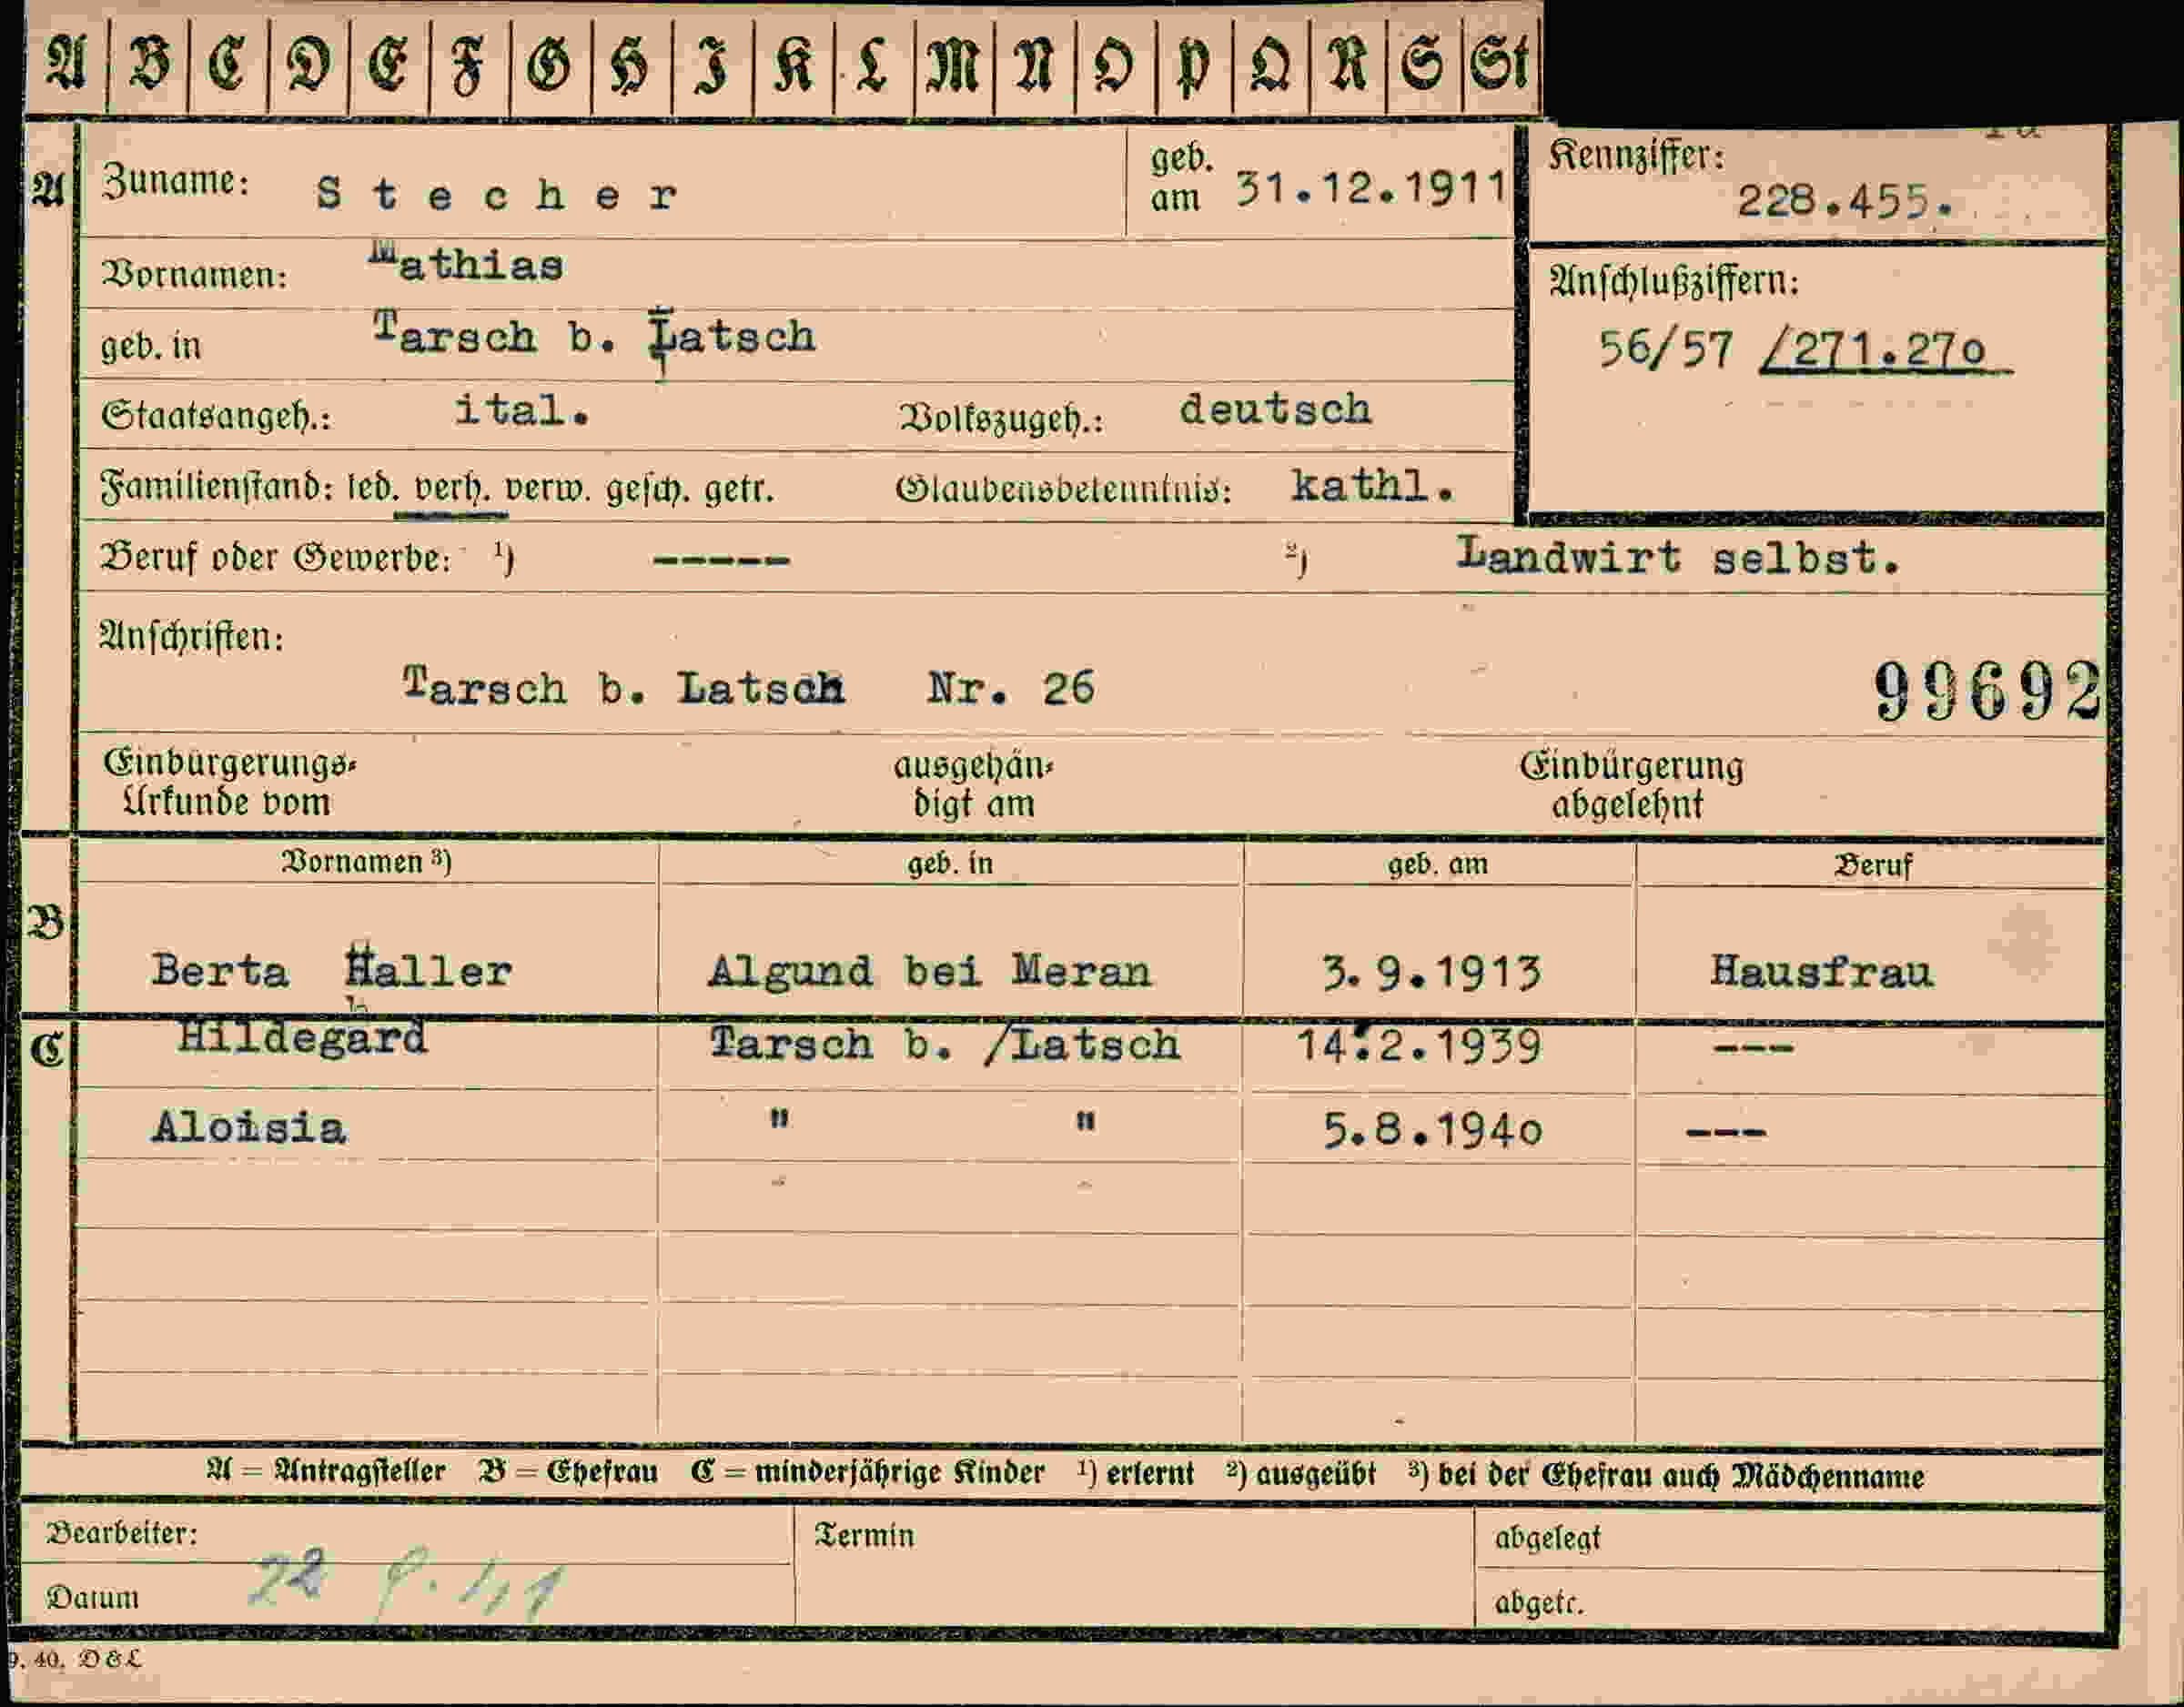 A B C D E F G H I K L M N O P Q R S St
A Zuname: Stecher geb. am 31.12.1911
Kennziffer: 228.455.
Vornamen: Mathias
Anschlußziffern:
geb. in Tarsch b. Latsch
56/57 /271.27o
Staatsangeh.: ital. Volkszugeh.: deutsch
Familienstand: led. verh. verw. gesch. getr. Glaubensbekenntnis: kathl.
Beruf oder Gewerbe: 1) ----- 2) Landwirt selbst.
Anschriften:
Tarsch b. Latsch Nr. 26
99692
Einbürgerungs-
Urkunde vom
ausgehän-
digt am
Einbürgerung
abgelehnt
Vornamen 3) geb. in geb. am Beruf
B
Berta Haller Algund bei Meran 3.9.1913 Hausfrau
C Hildegard Tarsch b. /Latsch 14.2.1939 ---
Aloisia " " 5.8.194o ---
A = Antragsteller B = Ehefrau C = minderjährige Kinder 1) erlernt 2) ausgeübt 3) bei der Ehefrau auch Mädchenname
Bearbeiter: Termin abgelegt
Datum 22 9. 41 abgetr.
9. 40. D&L